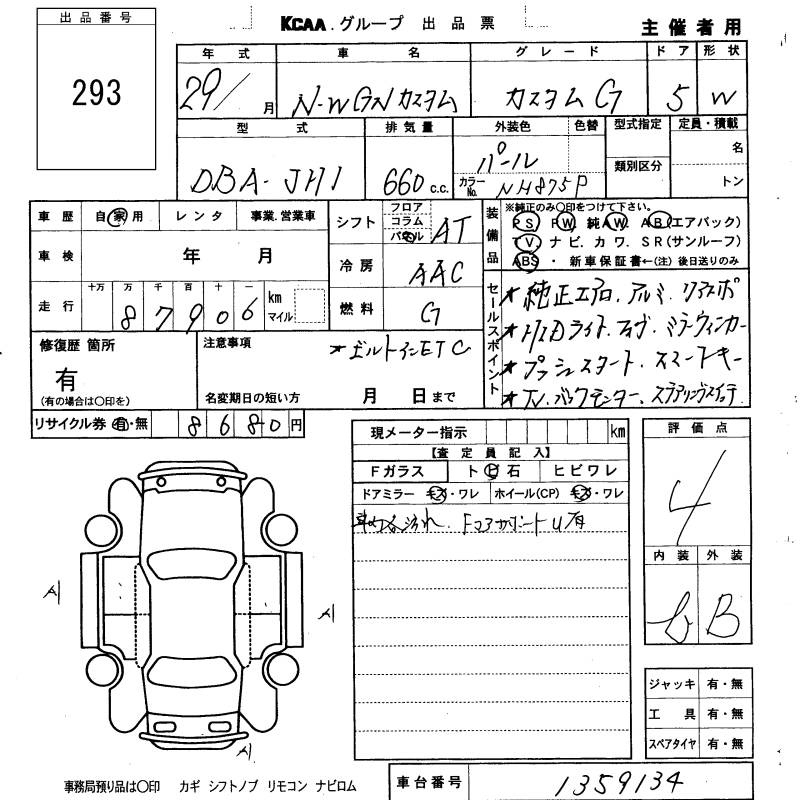 出品番号
293
KCAA.グループ 出品票
主催者用
年式 車名 グレード ドア 形状
29/月 N-WGNカスタム カスタムG 5 W
型式 排気量 外装色 色替 型式指定 定員・積載
DBA-JH1 660c.c. パール 名
類別区分
カラーNo. NH875P トン
車歴 自家用 レンタ 事業.営業車
車検 年 月
走行 十万 万 千 百 十 一
87906 km マイル
シフト フロア コラム パネル AT
冷房 AAC
燃料 G
装備品 ※純正のみ〇印をつけて下さい。
PS PW 純AW AB(エアバック)
TV ナビ カワ SR(サンルーフ)
ABS ・ 新車保証書←(注)後日送りのみ
セールスポイント
★純正エアロ.アルミ.リアスポ
★HIDライト.フォグ.ミラーウィンカー
★プッシュスタート.スマートキー
★TV.バックモニター.ステアリングスイッチ
修復歴 箇所
有
(有の場合は〇印を)
注意事項 ★ビルトインETC
名変期日の短い方 月 日まで
リサイクル券 有・無 8680円
現メーター指示 km
【査定員記入】
Fガラス トビ石 ヒビワレ
ドアミラー キズ・ワレ ホイール(CP) キズ・ワレ
汚れ. FコアサポートU有
評価点
4
内装 外装
B
A
A
A
ジャッキ 有・無
工具 有・無
スペアタイヤ 有・無
事務局預り品は〇印 カギ シフトノブ リモコン ナビロム
車台番号 1359134